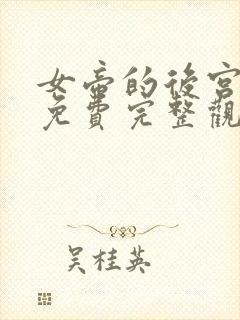 女帝的後宮
免費完整觀
吳桂英